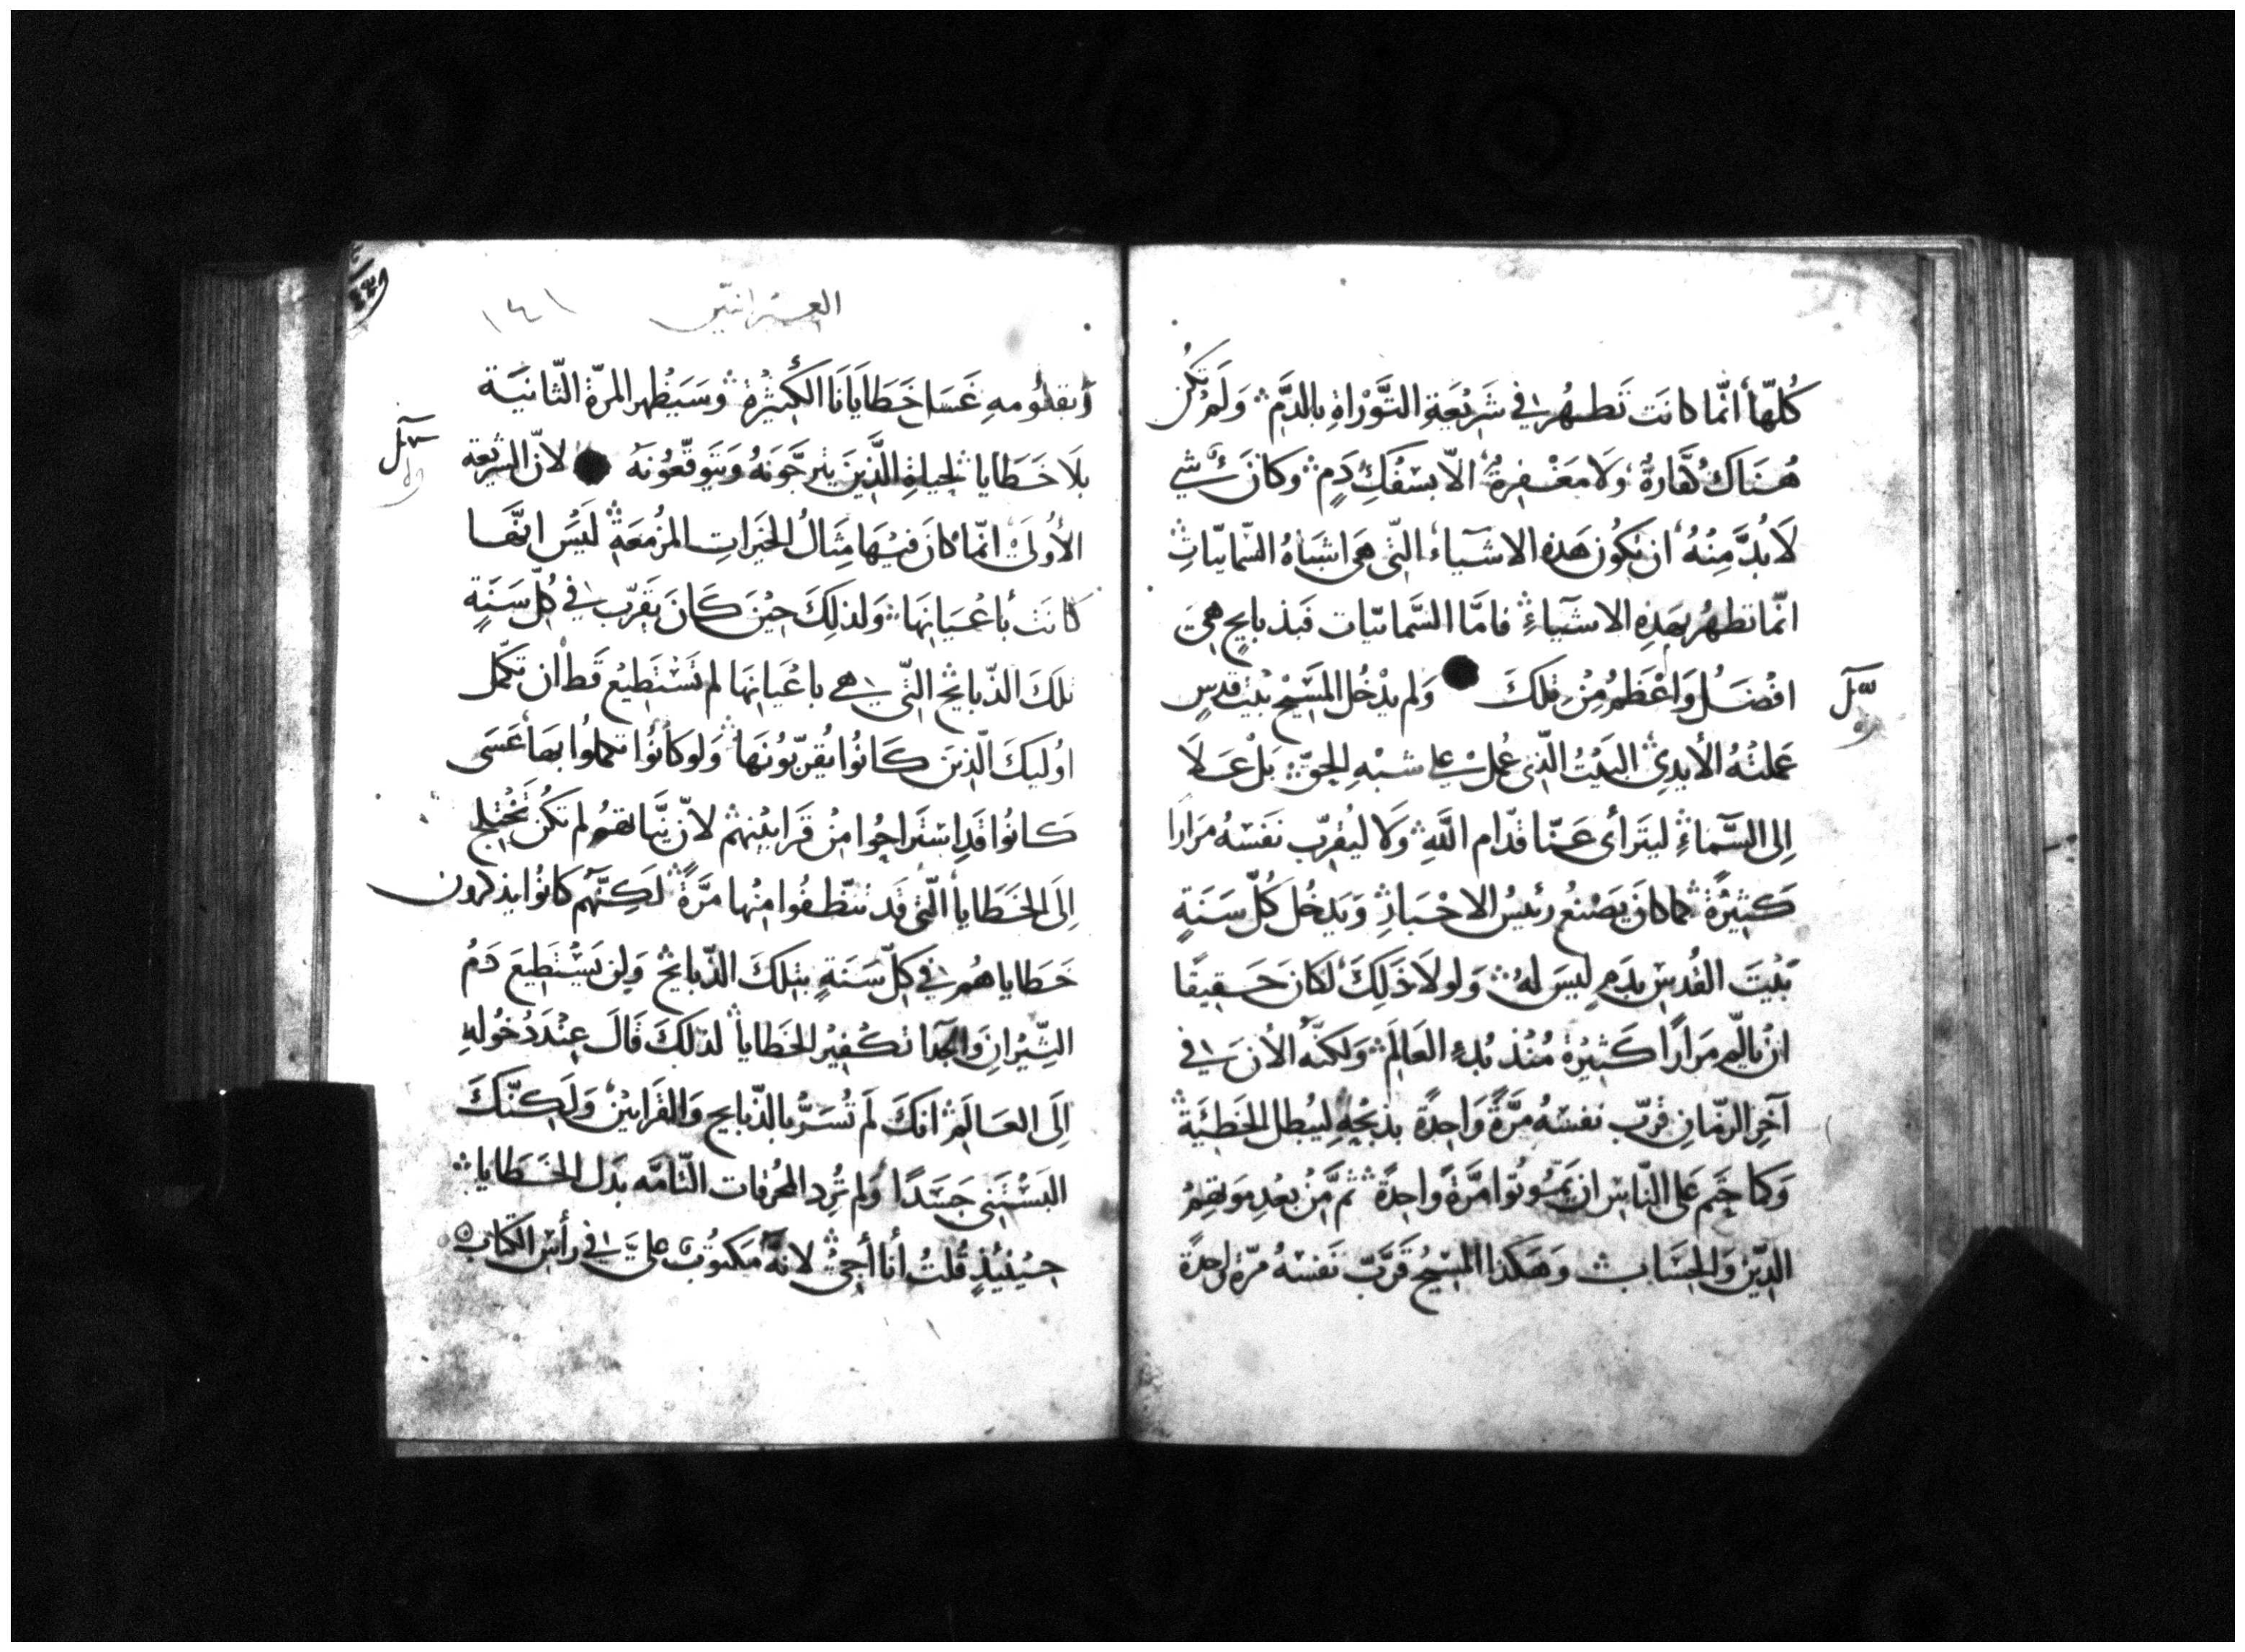 كُلّهَا انّما كانَت تَطهُر في شَرِيْعَةِ التَّوْرَاةِ بالدَّمِ وَلَم تكُن
هُنَاكَ طَهَارَةٌ وَلَا مَغْفِرةٌ الّا بسَفْكِ دَمٍ وكَانَ شي
لَا بُدَّ مِنْهُ ان تكُون هَذه الاشيَاء التّي هَي اشبَاهُ السّمائيّاتِ
انّما تطهرُ بهَذِهِ الاشيَاءِ فامَّا السَّمائيّات فَبذبايحٍ هِيَ
افْضَلُ وَاعْظَمُ مِنْ تِلكَ وَلم يدْخُل المَسيْح بيْتَ قدسٍ
عَملَتهُ الأيدِي البَيْتُ الّذِي عُملَ علي شبْهِ الحقّ بَلْ عَلَا
إلى السَّمَاءِ ليتَرَأى عَنّا قدّام اللَّهِ وَلا ليُقرّب نَفسَهُ مَرَارًا
كَثِيْرَةً كما كانَ يَصْنَع رئيسُ الاحْبَارِ وَيَدخُل كُلّ سَنَةٍ
بَيْتَ القُدسِ بدَمٍ ليسَ لهُ وَلولا ذَلِكَ لكانَ حَقيقًا
انْ يالَم مَرَارًا كَثِيْرَةً مُنْذ بُدءِ العَالَمِ وَلكنّه الأنَ في
آخِرِ الزّمَانِ قرّب نَفسَهُ مَرَّةً وَاحِدَةً بذبْحِهِ ليُبطل الخَطيَّة
وَكما حتم عَلى النّاسِ ان يَمُوتُوا مَرَّةً وَاحِدَةً ثمّ مِنْ بعْدِ مَوتهمُ
الدّيْن وَالحِسَاب وَهَكذَا المسِيْحُ قَرَّبَ نَفسَهُ مرّةً واحدَةً
العبرانيّين ١٤١
غَسَا خَطَايَانَا الكَثِيْرَة وَسَيَظهر المرّة الثّانيَة
بلَا خَطَايا لحياةِ الَّذينَ يترجَّونَهُ وَيتَوقّعُونَه لانّ الشريْعة
الأولَى انّما كانَ فيْهَا مِثَالُ الخيَرَاتِ المزْمَعَةِ لَيسَ انّهَا
كانَت بأعْيَانِهَا وَلذلِكَ حِيْنَ كَانَ يَقرّب في كُلّ سَنَةٍ
تلكَ الذّبايح التّي هي باعْيَانِهَا لم تَسْتَطيْع قَط ان تكمّل
اوليكَ الّذينَ كَانُوا يُقرّبُونَهَا وَلو كَانُوا تكملُوا بهَا عَسَى
كانُوا قَدِ اسْترَاحُوا مِنْ قَرَابيْنِهم لانّ نيَّاتهم لم تَكُن تَحْتَاج
إلَى الخَطَايا التّي قَد تنظّفُوا منْهَا مَرَّةً لَكِنَّهُم كانُوا يذكرُون
خَطاياهُم في كلّ سَنَةٍ بتلكَ الذّبايح وَلن يَسْتَطيعَ دَمُ
الثّيْرَانِ وَالجدَا تكفيْرَ الخَطايا لذلكَ قَالَ عِنْدَ دُخُولهِ
إلَى العَالَمِ انكَ لَم تُسَرّ بالذّبايح وَالقَرَابيْن وَلَكِنّكَ
البَسْتَني جَسَدًا وَلم تُرِد المحرقات التّامّه بَدَل الخَطَايا
حيْنيْذٍ قُلتُ أنا أجئ لانّه مَكتُوب عليَّ في رأسِ الكتَابِ